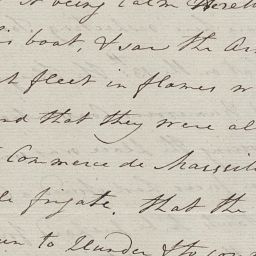 it being calm
is boat, & saw the Ar
fleet in flames w
nd that they were al
Commerce de Marseil
le frigate. that the
to & to